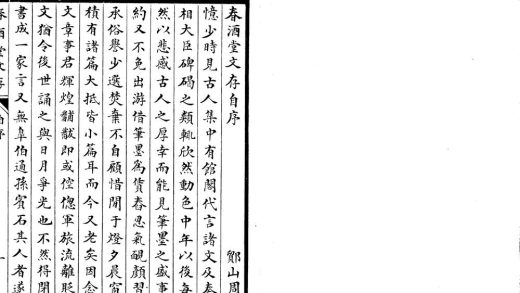 春酒堂文存自序
鄮山周
憶少時見古人集中有館閣代言諸文及奏
相大臣碑碣之類輒欣然動色中年以後每
然以悲感古人之厚幸而能見筆墨之盛事
約又不免出游借筆墨為賃舂恩氣靦顏習
承俗譽少選焚棄不自顧惜閒于燈夕晨窗
積有諸篇大抵皆小篇耳而今又老矣因念
文章事君輝煌黼黻即或倥傯軍旅流離貶
文猶令後世誦之與日月爭光也不然得閉
書成一家言又無皐伯通孫賓石其人者遂
春酒堂文存
自序
一